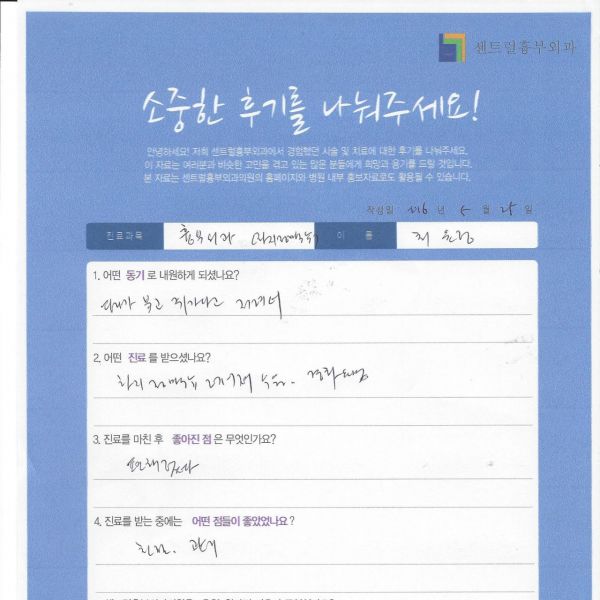 센트럴흉부외과
소중한 후기를 나눠주세요!
안녕하세요! 저희 센트럴흉부외과에서 경험했던 시술 및 치료에 대한 후기를 나눠주세요.
이 자료는 여러분과 비슷한 고민을 겪고 있는 많은 분들에게 희망과 용기를 드릴 것입니다.
본 자료는 센트럴흉부외과의원의 홈페이지와 병원 내부 홍보자료로도 활용될 수 있습니다.
작성일 년 5 월 25 일
진료과목 흉부외과 (하지정맥류) 이 름 최
1. 어떤 동기로 내원하게 되셨나요?
다리가 붓고
2. 어떤 진료를 받으셨나요?
하지정맥류 수술.
3. 진료를 마친 후 좋아진 점은 무엇인가요?
4. 진료를 받는 중에는 어떤 점들이 좋았었나요?
친절.